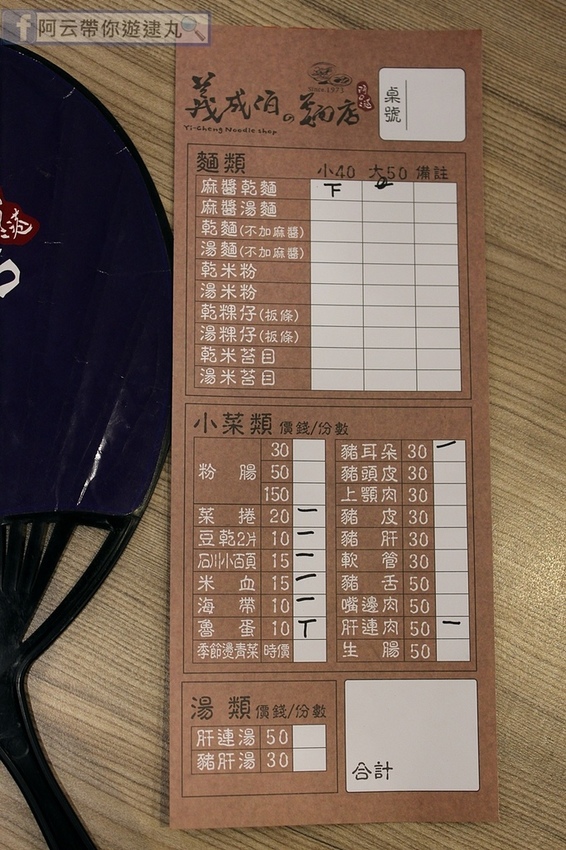 f 阿云帶你遊逮丸
義成伯の麵店
since 1973
Yi-Cheng Noodle shop
桌號
麵類 小40 大50 備註
麻醬乾麵 下
麻醬湯麵
乾麵(不加麻醬)
湯麵(不加麻醬)
乾米粉
湯米粉
乾粿仔(板條)
湯粿仔(板條)
乾米苔目
湯米苔目
小菜類 價錢/份數
粉腸 30
50
150
菜捲 20 一
豆乾2片 10 一
百頁 15 一
米血 15 一
海帶 10 一
魯蛋 10 丅
季節燙青菜 時價
豬耳朵 30 一
豬頭皮 30
上顎肉 30
豬皮 30
豬肝 30
軟管 30
豬舌 50
嘴邊肉 50
肝連肉 50 一
生腸 50
湯類 價錢/份數
肝連湯 50
豬肝湯 30
合計